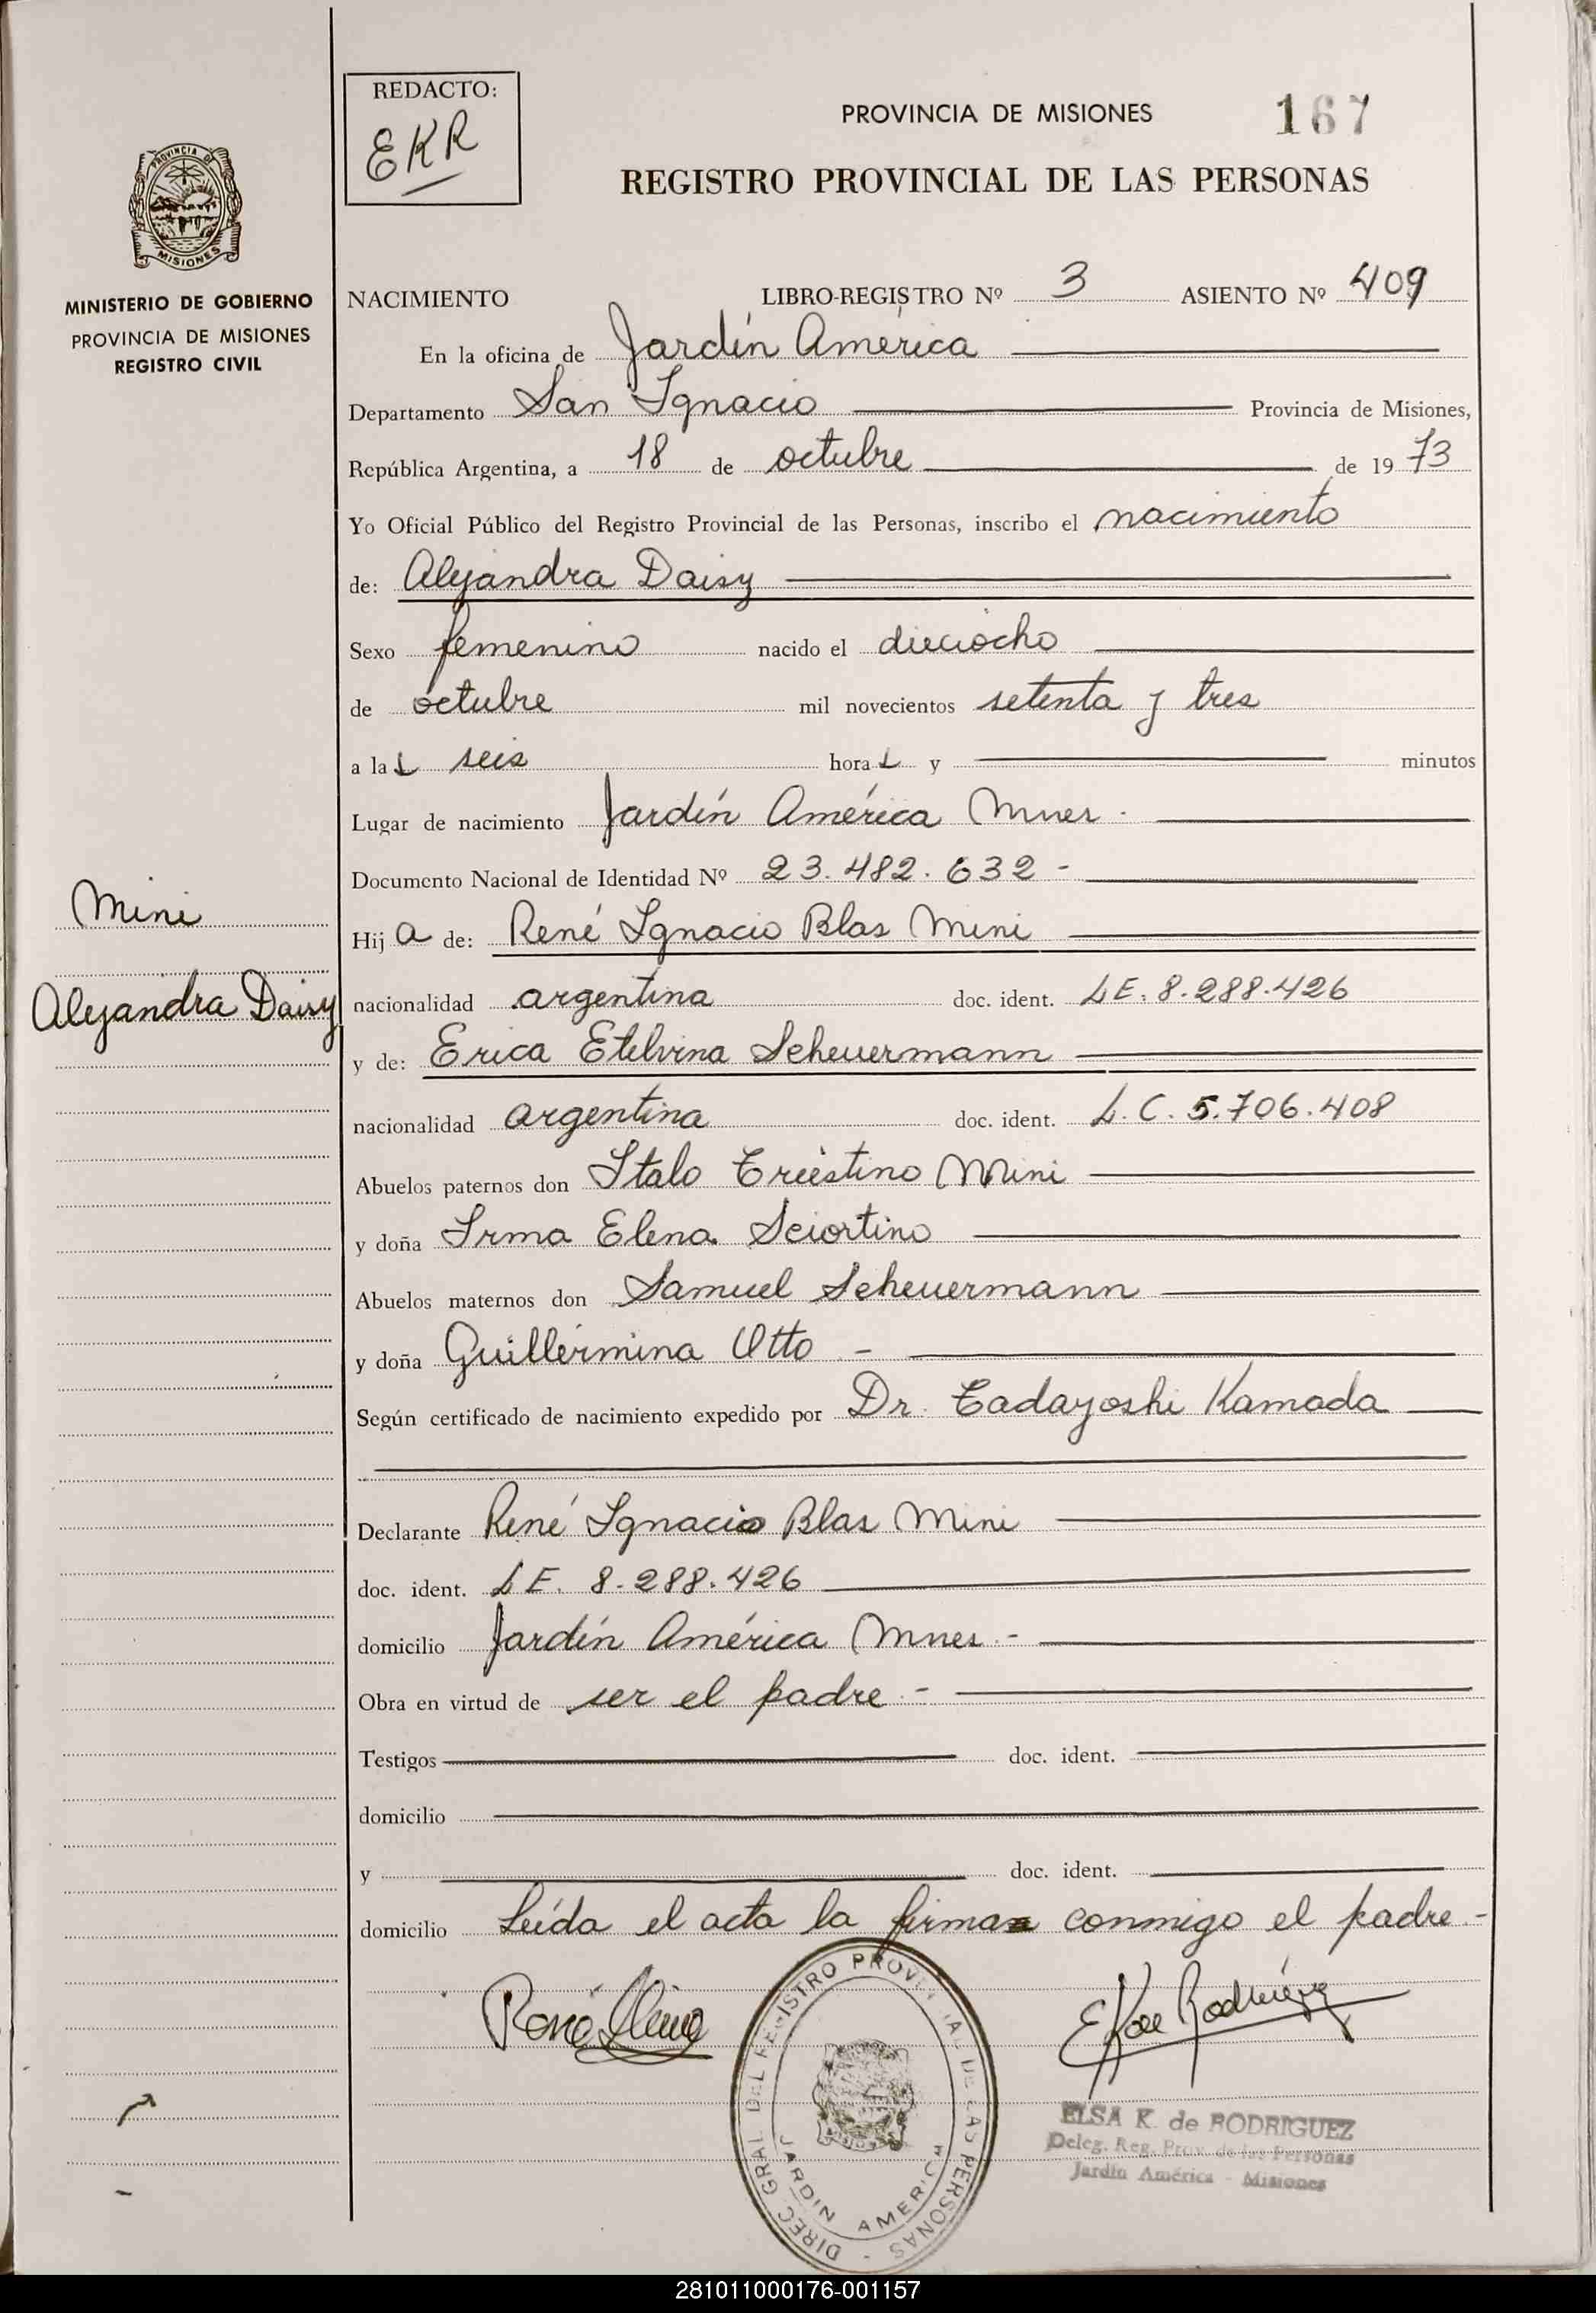 REDACTO:
EKR
PROVINCIA DE MISIONES
167
REGISTRO PROVINCIAL DE LAS PERSONAS
PROVINCIA DE
MISIONES
MINISTERIO DE GOBIERNO
PROVINCIA DE MISIONES
REGISTRO CIVIL
NACIMIENTO LIBRO-REGISTRO Nº 3 ASIENTO Nº 409
En la oficina de Jardín América
Departamento San Ignacio Provincia de Misiones,
República Argentina, a 18 de octubre de 1973
Yo Oficial Público del Registro Provincial de las Personas, inscribo el nacimiento
de: Alejandra Daisy
Sexo femenino nacido el dieciocho
de octubre mil novecientos setenta y tres
a las seis horas y minutos
Lugar de nacimiento Jardín América Mnes.
Documento Nacional de Identidad Nº 23.482.632 -
Mini
Alejandra Daisy
Hija de: René Ignacio Blas Mini
nacionalidad argentina doc. ident. LE. 8.288.426
y de: Erica Etelvina Scheuermann
nacionalidad argentina doc. ident. L.C. 5.706.408
Abuelos paternos don Italo Triestino Mini
y doña Irma Elena Sciortino
Abuelos maternos don Samuel Scheuermann
y doña Guillermina Otto -
Según certificado de nacimiento expedido por Dr. Tadayoshi Kamada
Declarante René Ignacio Blas Mini
doc. ident. LE. 8.288.426
domicilio Jardín América Mnes.-
Obra en virtud de ser el padre.-
Testigos doc. ident.
domicilio
y doc. ident.
domicilio Leída el acta la firma conmigo el padre.-
René Mini
EK de Rodríguez
DIREC GRAL DEL REGISTRO PROVINCIAL DE LAS PERSONAS -
JARDIN AMERICA
ELSA K. de RODRIGUEZ
Deleg. Reg. Prov. de las Personas
Jardín América - Misiones
281011000176-001157